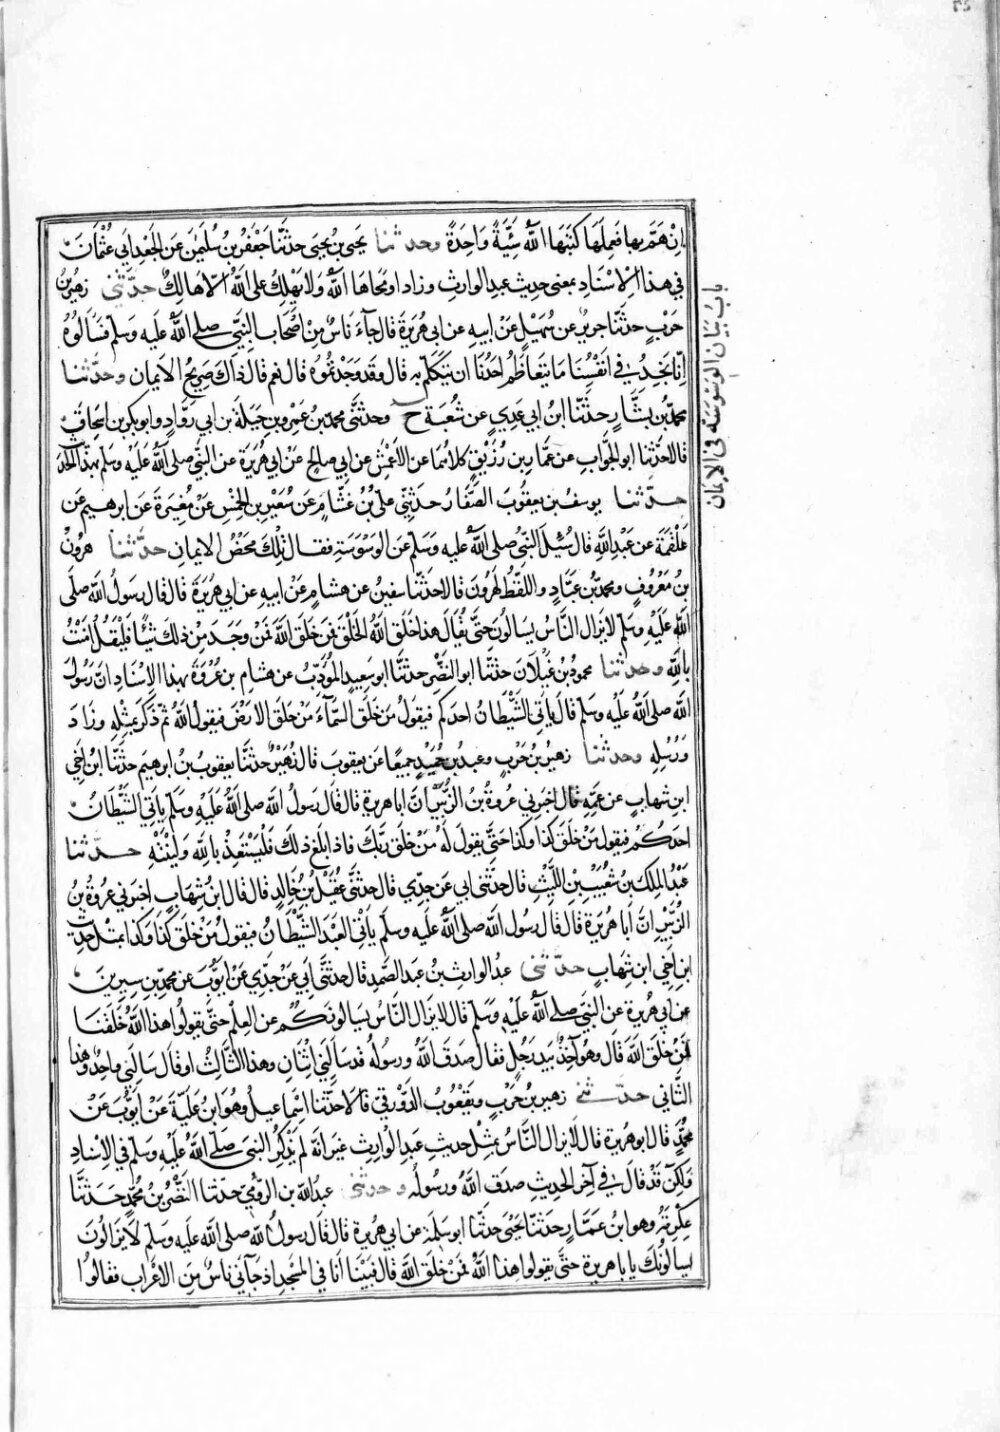 ٢٥
باب بيان الوسوسة فى الايمان
اِنْ هَمَّ بها فَعِلَهَا كَتَبَهَا اللّٰهُ سَيِّئَةً وَاحِدَةً وحدثنا يحيى بن يحيى حدثنا جَعْفَرُ بن سُلَيمٰنَ عَنِ الجَعْدِ ابي عُثْمَانَ
في هذا الاِسْنَادِ بمعنى حديث عبدِ الوارثِ وزاد او محَاهَا اللّٰهُ ولا يَهْلِكُ على اللّٰهِ اِلّا هالِكٌ حدّثني زهير بنُ
حَرْبٍ حدّثنا جريرٌ عن سُهَيْلٍ عَنْ ابيه عن ابي هُرَيرَةَ قال جآءَ نَاسٌ مِنْ اَصْحَابِ النبيّ صلى اللّٰهُ عليه وسلم فَسَاَلُوهُ
اِنّا نجِدُ في اَنفُسِنَا مَا يتَعَاظَمُ اَحَدُنَا ان يَتكلّم به قال وقد وَجَدْتُمُوهُ قال نعم قال ذَاكَ صَرِيحُ الايمان وحدّثنا
محمد بن بشّار حدّثنا ابنُ ابي عَدِيٍ عن شُعبة ح وحدثنى محمد بنُ عَمْرِو بنِ جَبَلَةَ بن ابي رَوَّادٍ وابو بكرِ بن اِسْحَاقَ
قالا حَدّثنا ابو الجوّابِ عن عمّارِ بن رُزَيْقٍ كلاهُما عن الاَعْمَشِ عن ابي صالحٍ عَنْ ابي هُرَيرَةَ عن النبيّ صلى اللّٰهُ عَلَيْهِ وسلم بهذا الحديث
حدّثنا يوسف بن يعقوبَ الصَّفّارُ حدثني عليّ بْنُ عَثّامٍ عن سُعَيْرِ بنِ الخِمْسِ عَنْ مُغِيرَةَ عَن ابرهيم عن
عَلْقَمَةَ عن عبدِ اللّٰهِ قال سُئِلَ النبيُّ صلى اللّٰهُ عليه وسَلّم عن الوَسْوَسَةِ فقال تِلْكَ مَحْضُ الايمانِ حدّثنا هرُونُ
بنُ مَعْرُوفٍ ومحمد بنُ عبّادٍ واللفظُ لهرُونَ قالا حَدثنا سفين عن هشامٍ عَنْ ابيه عن ابي هُرَيرَةَ قال قال رَسولُ اللّٰهِ صلى
اللّٰهُ عَلَيْهِ وسلم لا يزال النَّاسُ يتساءلونَ حتّى يُقَالَ هذا خَلَقَ اللّٰهُ الخَلْقَ فمن خَلَقَ اللّٰهَ فَمَنْ وَجَدَ مِنْ ذلك شيئًا فليَقُلْ آمَنْتُ
باللّٰهِ وحدثنا محمودُ بن غَيْلَانَ حدّثنا ابو النّضْرِ حدثنا ابو سَعِيدٍ المُؤَدِّبُ عن هشامِ بن عُرْوَةَ بهذا الاِسْنَادِ اَنّ رَسُولَ
اللّٰه صلى اللّٰهُ عليْهِ وسلم قال يأتِي الشَّيْطَانُ احدَكم فيقولُ من خَلَقَ السّمآءَ مَنْ خلق الارْضَ فيقولُ اللّٰهُ ثم ذَكَرَ بمِثْلِهِ وزَادَ
وَرُسُلِهِ وحدثنا زهيرُ بنُ حَرْبٍ وعبد بن حُمَيدٍ جميعًا عن يعقوبَ قال زُهَيْرٌ حدّثنا يعقوبُ بن ابرهيم حدّثنا ابنُ اَخِي
ابنِ شهابٍ عن عمّهِ قال اخبرني عروةُ بنُ الزُّبَيْرِ اَنّ ابا هريرة قال قال رسولُ اللّٰه صلى اللّٰهُ عَلَيْهِ وسَلّم يأتِي الشَّيْطَانُ
احدَكُم فيقولُ مَنْ خَلَقَ كذا وكذا حتّى يقولَ لَهُ مَنْ خلقَ ربّكَ فاذا بلغ ذلك فَلْيَسْتَعِذْ باللّٰهِ وليَنْتَهِ حدّثنا
عبدُ الملِكِ بنُ شُعَيْبِ بن اللّيْثِ قال حدثني ابي عن جدِّي قال حدّثني عُقَيْلُ بن خَالِدٍ قال قال ابنُ شِهَابٍ اخبرني عروةُ بن
الزُّبَيْرِ انّ ابا هُرَيرَةَ قال قال رسول اللّٰه صلى اللّٰهُ عَلَيه وسلم يأتي العبدَ الشَّيْطَانُ فيقولُ مَنْ خلق كذا وكذا بمثل حديث
ابنِ اَخِي ابنِ شِهَابٍ حدثني عبدُ الوارثِ بنُ عبد الصمدِ قال حدّثني اَبي عَنْ جدِّي عَنْ ايّوبَ عن محمد بن سِيرِينَ
عن ابي هريرة عن النبيّ صلى اللّٰهُ عَلَيْهِ وسلم قال لا يزال النّاسُ يسالونكُم عن العِلمِ حتّى يقولُوا هذا اللّٰهُ خَلَقَنَا
فَمَنْ خلقَ اللّٰهَ قَالَ وهُو آخِذٌ بيَدِ رَجُلٍ فقال صَدَقَ اللّٰهُ ورسولُهُ قد سَالَنِي اثْنَانِ وهذا الثّالِثُ او قال سَالَنِي واحدٌ وهذا
الثّاني حدّثنيه زهيرُ بن حَرْبٍ ويَعْقُوبُ الدَّوْرَقِيّ قالا حدّثنا اِسْمَاعيلُ وهو ابنُ عُلَيّةَ عَنْ ايّوبَ عَنْ
محمدٍ قال قال ابو هريرة لا يزال النّاسُ بمِثْلِ حديثِ عبدِ الوارِثِ غير اَنّه لم يَذْكُرِ النبيّ صلى اللّٰهُ عَلَيْهِ وسلم في الاِسْنَادِ
ولكِنْ قَدْ قال في آخِرِ الحدِيثِ صدَق اللّٰهُ ورسولُهُ وحدثني عبدُ اللّٰهِ بن الرّومِيّ حدّثنا النّضْرُ بنُ محمدٍ حَدَثَنَا
عِكْرِمَةُ وهو ابنُ عَمّارٍ حدّثنا يَحْيَى حَدّثنا ابو سَلمةَ عن ابي هريرة قال قال لي رَسولُ اللّٰه صلى اللّٰهُ عليه وسلم لا يزَالُونَ
يسالونكَ يا ابا هريرة حتّى يقولوا هذا اللّٰهُ فمن خَلَقَ اللّٰهَ قال فبَيْنا اَنا في المسجد اذ جآءَني ناسٌ مِنَ الاَعْرَاب فقالوا